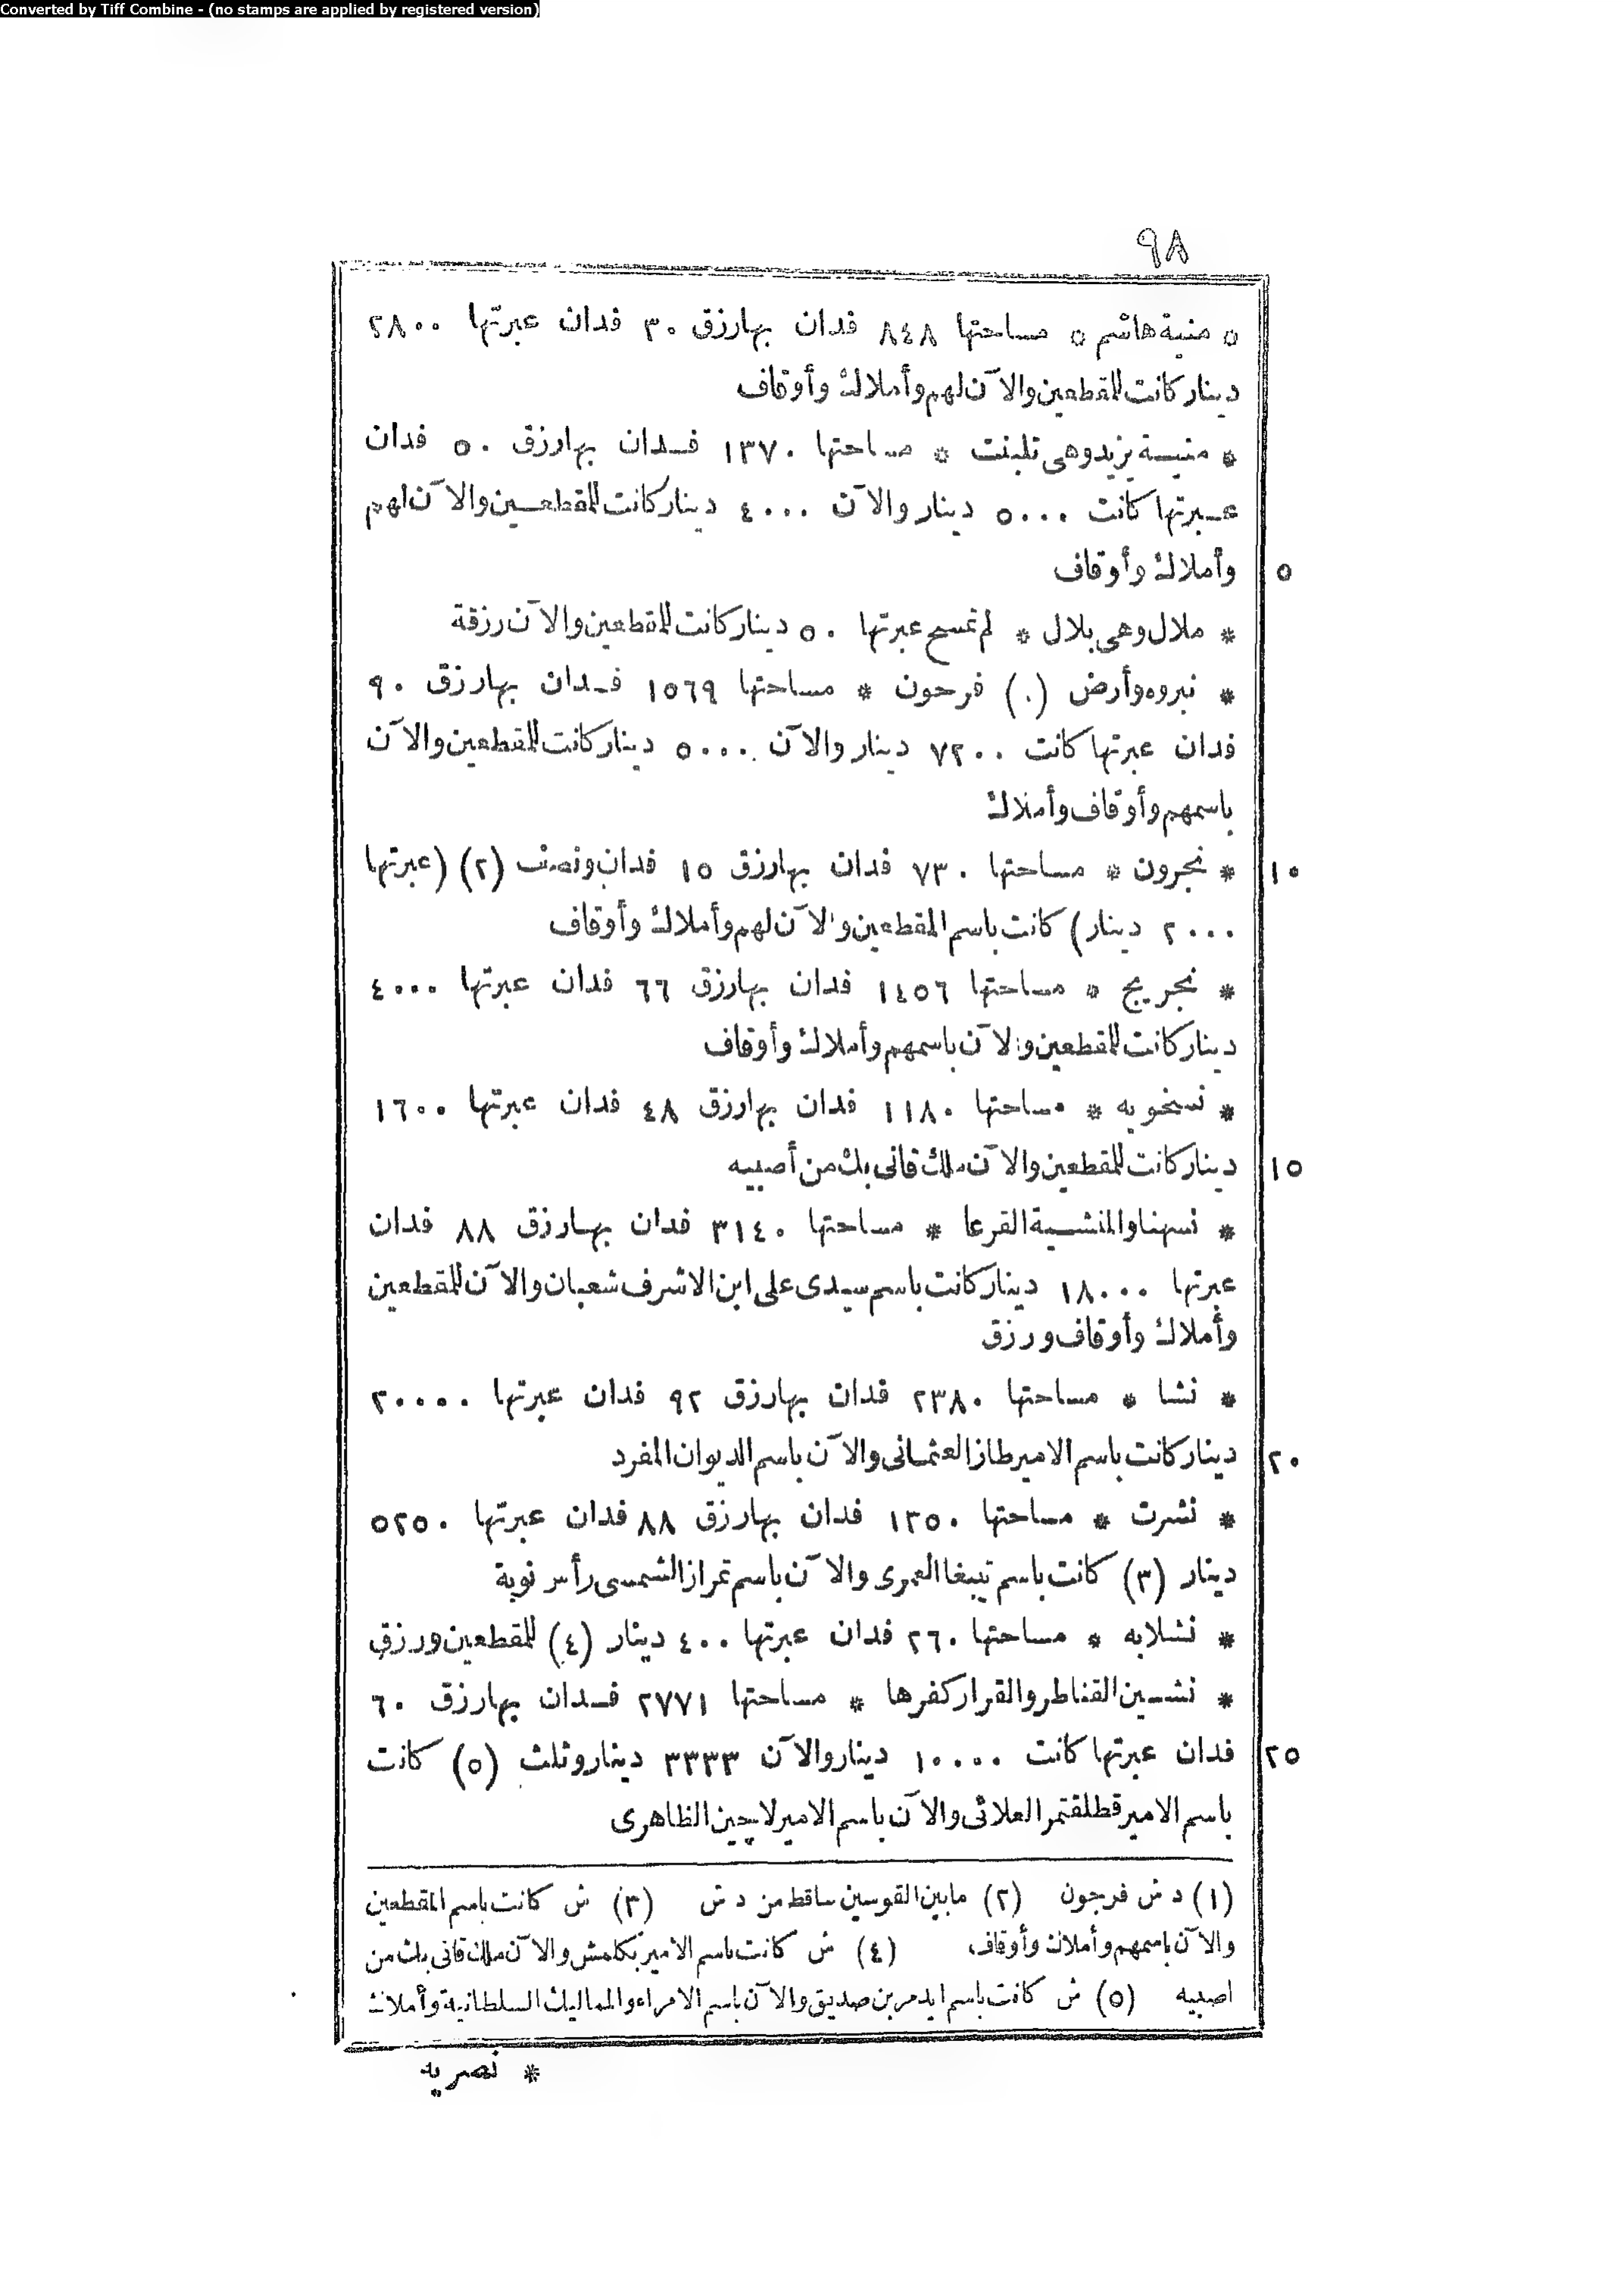 Converted by Tiff Combine - (no stamps are applied by registered version)
٩٨
* منية هاشم * مساحتها ٨٤٨ فدان بها رزق ٣٠ فدان عبرتها ٢٨٠٠
دينار كانت للمقطعين والآن لهم وأملاك وأوقاف
* منيـة يزيد وهى تلبنت * مساحتها ١٣٧٠ فـدان بها رزق ٥٠ فدان
عـبرتها كانت ٥٠٠٠ دينار والآن ٤٠٠٠ دينار كانت للمقطعـين والآن لهم
٥ وأملاك وأوقاف
* ملال وهى بلال * لم تمسح عبرتها ٥٠ دينار كانت للمقطعين والآن رزقة
* نبروه وأرض (١) فرحون * مساحتها ١٥٦٩ فـدان بها رزق ٩٠
فدان عبرتها كانت ٧٢٠٠ دينار والآن ٥٠٠٠ دينار كانت للمقطعين والآن
باسمهم وأوقاف وأملاك
١٠ * نجرون * مساحتها ٧٣٠ فدان بها رزق ١٥ فدان ونصف (٢) (عبرتها
٢٠٠٠ دينار) كانت باسم المقطعين والآن لهم وأملاك وأوقاف
* نجريج * مساحتها ١٤٥٦ فدان بها رزق ٦٦ فدان عبرتها ٤٠٠٠
دينار كانت للمقطعين والآن باسمهم وأملاك وأوقاف
* نسخويه * مساحتها ١١٨٠ فدان بها رزق ٤٨ فدان عبرتها ١٦٠٠
١٥ دينار كانت للمقطعين والآن ملك قانى بك من أصبيه
* نسهنا والمنشـية القرعا * مساحتها ٣١٤٠ فدان بهـا رزق ٨٨ فدان
عبرتها ١٨٠٠٠ دينار كانت باسم سيدى على ابن الاشرف شعبان والآن للمقطعين
وأملاك وأوقاف ورزق
* نشا * مساحتها ٢٣٨٠ فدان بها رزق ٩٢ فدان عبرتها ٢٠٠٠٠
٢٠ دينار كانت باسم الامير طاز العثمانى والآن باسم الديوان المفرد
* نشرت * مساحتها ١٣٥٠ فدان بها رزق ٨٨ فدان عبرتها ٥٢٥٠
دينار (٣) كانت باسم تيبغا العمرى والآن باسم تمراز الشمسى رأس نوبة
* نشلابه * مساحتها ٢٦٠ فدان عبرتها ٤٠٠ دينار (٤) للمقطعين ورزق
* نشـين القناطر والقرار كفرها * مساحتها ٢٧٧١ فـدان بها رزق ٦٠
٢٥ فدان عبرتها كانت ١٠٠٠٠ دينار والآن ٣٣٣٣ دينار وثلث (٥) كانت
باسم الامير قطلقتمر العلائى والآن باسم الامير لاجين الظاهرى
(١) د ش فرجون (٢) ما بين القوسين ساقط من د ش (٣) ش كانت باسم المقطعين
والآن باسمهم وأملاك وأوقاف (٤) ش كانت باسم الامير بكلمش والآن ملك قانى بك من
اصبيه (٥) ش كانت باسم ايدمر بن صديق والآن باسم الامراء والمماليك السلطانية وأملاك
* نصريه